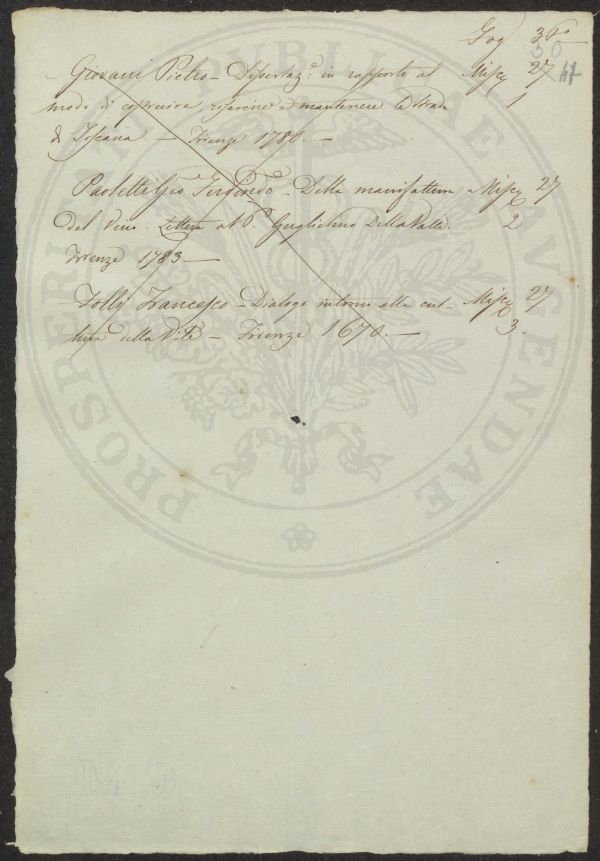 Fog. 36
50
47
Giovani Pietro - Dissertaz.e in rapporto al Miscy 27
modo di costruire, risarcire e mantenere le strade 1
di Toscana — Firenze 1780. —
Paoletti Gio Ferdin.do - Della manifattura Miscy 27
del Vino. Lettera al P. Guglielmo Della Valle. 2
Firenze 1783 —
Folli Francesco - Dialogo intorno alla cul- Miscy 27
tura della Vite - Firenze 1670. — 3.
PROSPERITATI PUBLICAE AUGENDAE